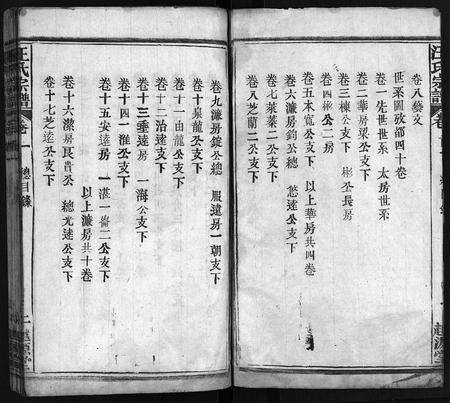 卷八藝文
世系圖攷部四十卷
卷一先世世系 太房世系
卷二華房梁公支下
卷三棟公支下 彬公長房
卷四棟公二房
卷五本寬公支下 以上華房共四卷
卷六濂房鈞公總 愻達公支下
卷七萊菜二公支下
卷八芝蘭二公支下
卷九濂房錠公總 服遠房一朝支下
卷十泉龍公支下
卷十一由龍公支下
卷十二治達支下
卷十三垂達房 一海公支下
卷十四一淮公支下
卷十五安達房 一湛一倫二公支下
以上濂房共十卷
卷十六潔房民貴公 總光達公支下
卷十七芝達公支下
汪氏宗譜
卷一
總目錄
二
越源堂